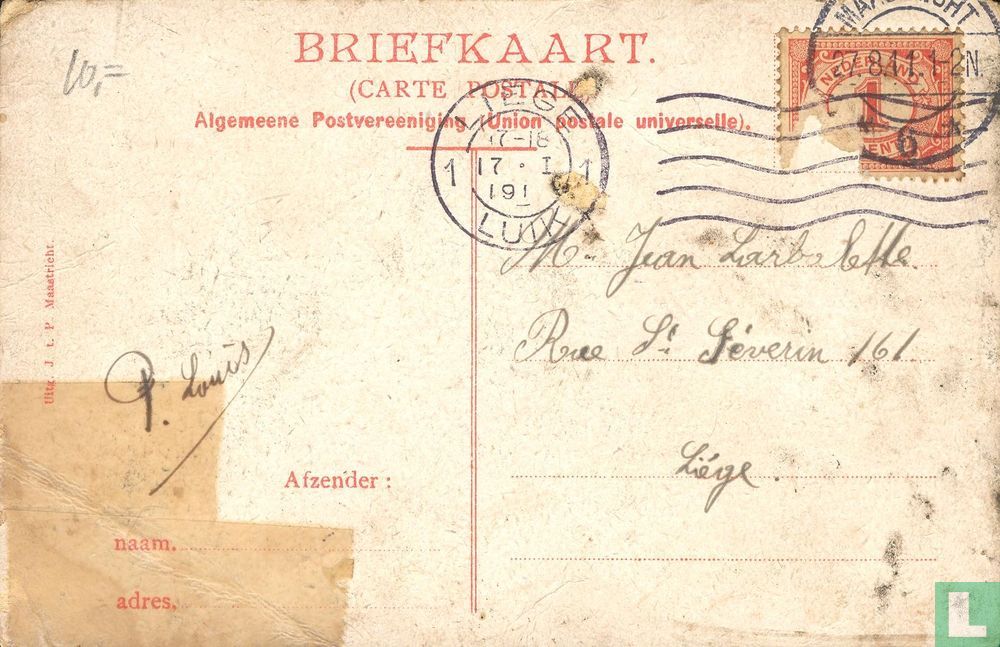 BRIEFKAART.
(CARTE POSTALE)
Algemeene Postvereeniging (Union postale universelle).
10,=
NEDERLAND
1
CENT
1-2N.
6
LIÉGE
17-18
1 17 · I 1
191
LUIK
Mr Jean Larbalette
Rue St Séverin 161
Liége
P. Louis
Uitg. J. t. P. Maastricht.
Afzender:
naam.
adres.
L